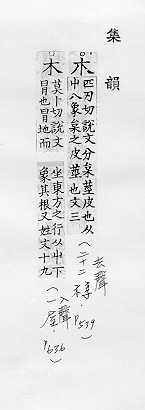 集韻
𣎳
匹刃切說文分枲莖皮也从
屮八象枲之皮莖也文三
(去聲
二十二稕・P539)
木
莫卜切說文
冒也冒地而
生東方之行从屮下
象其根又姓文十九
(入聲
一屋・P636)